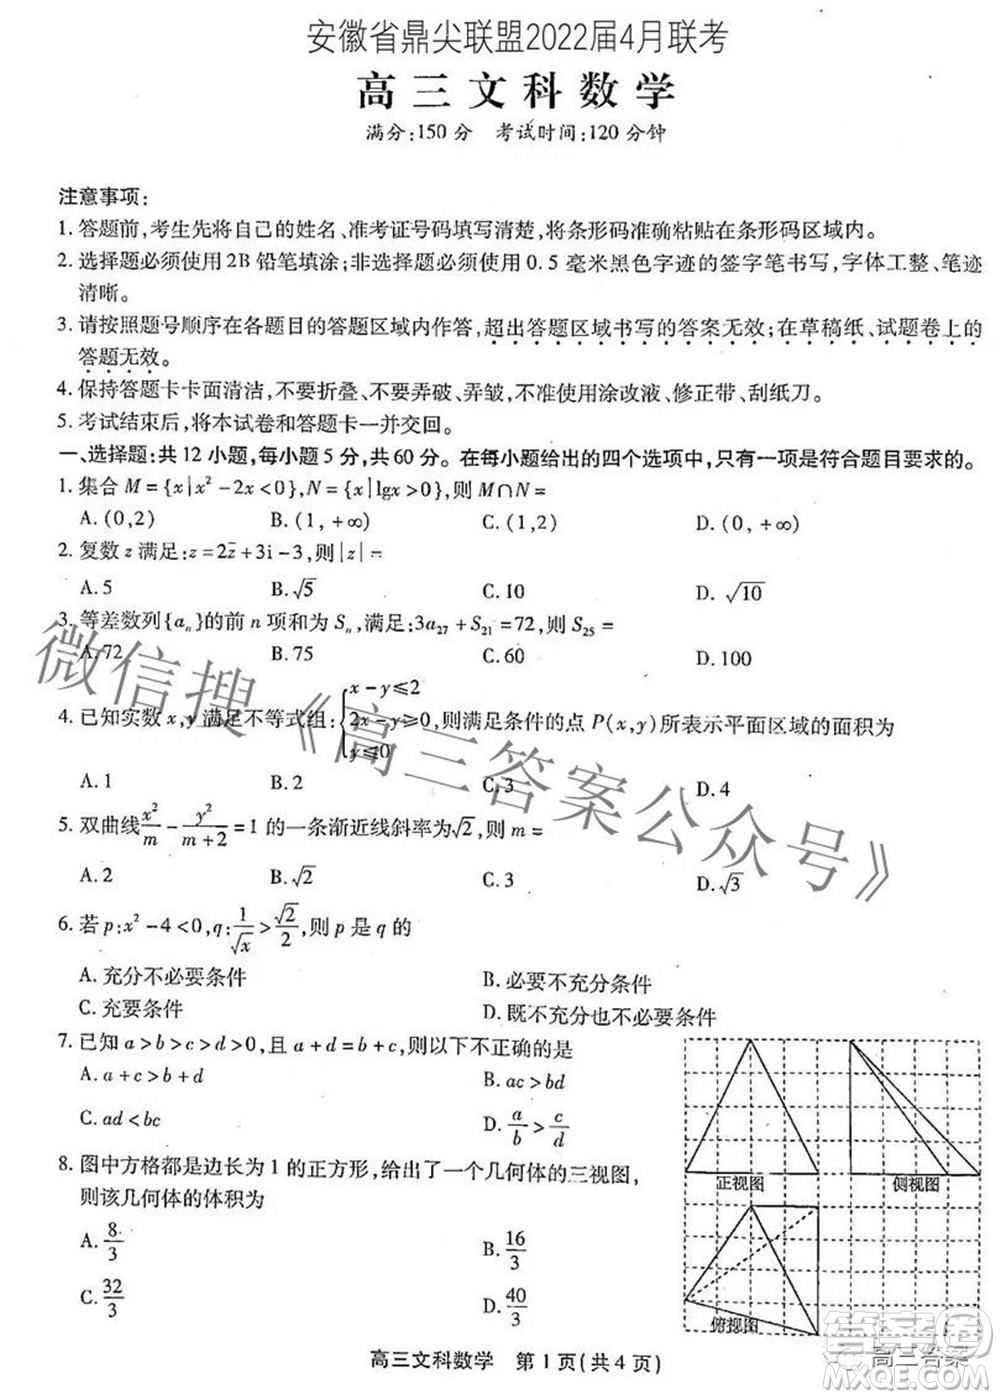 安徽省鼎尖联盟2022届4月联考
高三文科数学
满分:150分 考试时间:120分钟
注意事项:
1. 答题前,考生先将自己的姓名、准考证号码填写清楚,将条形码准确粘贴在条形码区域内。
2. 选择题必须使用2B铅笔填涂;非选择题必须使用0.5毫米黑色字迹的签字笔书写,字体工整、笔迹
清晰。
3. 请按照题号顺序在各题目的答题区域内作答,超出答题区域书写的答案无效;在草稿纸、试题卷上的
答题无效。
4. 保持答题卡卡面清洁,不要折叠、不要弄破、弄皱,不准使用涂改液、修正带、刮纸刀。
5. 考试结束后,将本试卷和答题卡一并交回。
一、选择题:共12小题,每小题5分,共60分。在每小题给出的四个选项中,只有一项是符合题目要求的。
1. 集合 M={x|x²-2x<0},N={x|lgx>0},则 M∩N=
A. (0,2) B. (1,+∞) C. (1,2) D. (0,+∞)
2. 复数 z 满足:z=2z̄+3i-3,则|z|=
A. 5 B. √5 C. 10 D. √10
3. 等差数列{aₙ}的前 n 项和为 Sₙ,满足:3a₂₇+S₂₁=72,则 S₂₅=
A. 72 B. 75 C. 60 D. 100
4. 已知实数 x,y 满足不等式组:{x-y≤2 2x-y≥0 y≤0,则满足条件的点 P(x,y)所表示平面区域的面积为
A. 1 B. 2 C. 3 D. 4
5. 双曲线x²/m-y²/(m+2)=1的一条渐近线斜率为√2,则 m=
A. 2 B. √2 C. 3 D. √3
6. 若 p:x²-4<0,q:1/√x>√2/2,则 p 是 q 的
A. 充分不必要条件 B. 必要不充分条件
C. 充要条件 D. 既不充分也不必要条件
7. 已知 a>b>c>d>0,且 a+d=b+c,则以下不正确的是
A. a+c>b+d B. ac>bd
C. ad<bc D. a/b>c/d
8. 图中方格都是边长为1的正方形,给出了一个几何体的三视图,
则该几何体的体积为
A. 8/3 B. 16/3
C. 32/3 D. 40/3
正视图 侧视图
俯视图
高三文科数学 第1页(共4页)
微信搜《高三答案公众号》
答案圈
高三答案